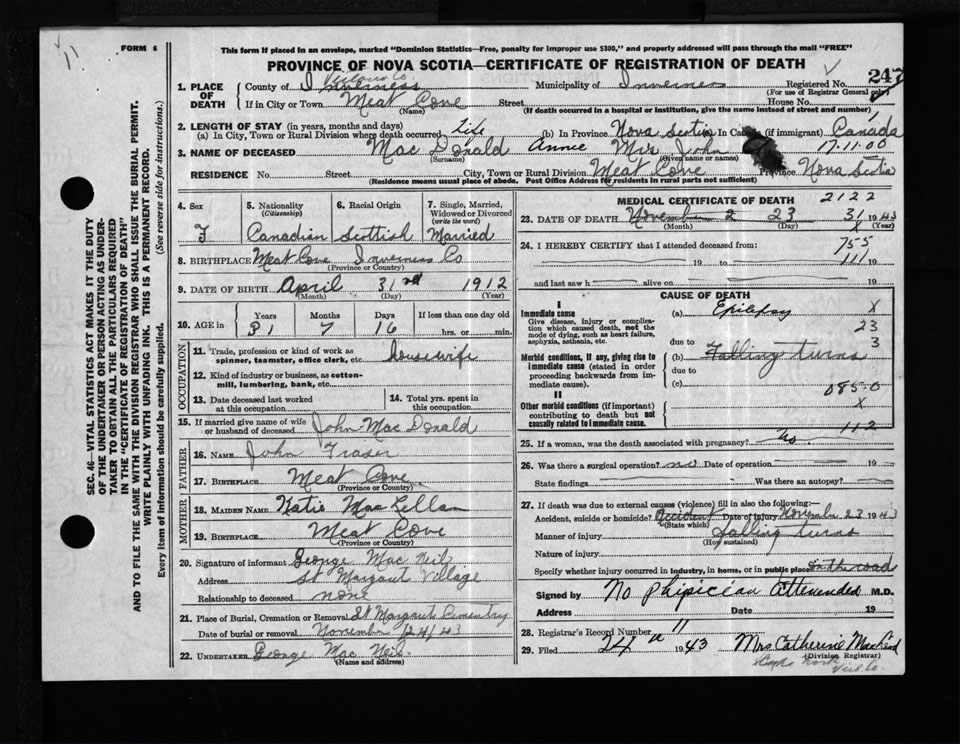 FORM 6
This form if placed in an envelope, marked "Dominion Statistics—Free, penalty for improper use $300," and properly addressed will pass through the mail "FREE"
PROVINCE OF NOVA SCOTIA—CERTIFICATE OF REGISTRATION OF DEATH
247
SEC. 46 – VITAL STATISTICS ACT MAKES IT THE DUTY
OF THE UNDERTAKER OR PERSON ACTING AS UNDER-
TAKER TO OBTAIN ALL THE PARTICULARS REQUIRED
IN THE "CERTIFICATE OF REGISTRATION OF DEATH"
AND TO FILE THE SAME WITH THE DIVISION REGISTRAR WHO SHALL ISSUE THE BURIAL PERMIT.
WRITE PLAINLY WITH UNFADING INK. THIS IS A PERMANENT RECORD.
Every item of information should be carefully supplied. (See reverse side for instructions.)
Victoria Co.
1. PLACE OF DEATH County of Inverness Municipality of Inverness Registered No.
(For use of Registrar General only)
If in City or Town Meat Cove Street House No.
(Name) (If death occurred in a hospital or institution, give the name instead of street and number)
2. LENGTH OF STAY (in years, months and days)
(a) In City, Town or Rural Division where death occurred Life (b) In Province Nova Scotia In Canada (if immigrant) Canada
3. NAME OF DECEASED Mac Donald Annie Mrs John 17.11.00
(Surname) (Given name or names)
RESIDENCE No. Street City, Town or Rural Division Meat Cove Province Nova Scotia
(Residence means usual place of abode. Post Office Address for residents in rural parts not sufficient)
4. Sex F
5. Nationality (Citizenship) Canadian
6. Racial Origin Scottish
7. Single, Married, Widowed or Divorced (write the word) Married
8. BIRTHPLACE Meat Cove Inverness Co
(Province or Country)
9. DATE OF BIRTH April 31 1912
(Month) (Day) (Year)
10. AGE in Years Months Days If less than one day old
31 7 16 hrs. or min.
OCCUPATION
11. Trade, profession or kind of work as spinner, teamster, office clerk, etc. housewife
12. Kind of industry or business, as cotton-mill, lumbering, bank, etc.
13. Date deceased last worked at this occupation
14. Total yrs. spent in this occupation
15. If married give name of wife or husband of deceased John Mac Donald
FATHER
16. NAME John Fraser
17. BIRTHPLACE Meat Cove
(Province or Country)
MOTHER
18. MAIDEN NAME Katie MacLellan
19. BIRTHPLACE Meat Cove
(Province or Country)
20. Signature of informant George Mac Neil
Address St Margaret Village
Relationship to deceased none
21. Place of Burial, Cremation or Removal St Margarets Cementry
Date of burial or removal November 24/43
22. UNDERTAKER George Mac Neil
(Name and address)
MEDICAL CERTIFICATE OF DEATH 2122
23. DATE OF DEATH November 2 23 31 1943
(Month) (Day) (Year)
X
24. I HEREBY CERTIFY that I attended deceased from: 755
19 to 19
111
and last saw h alive on 19
CAUSE OF DEATH
I
Immediate cause
Give disease, injury or complication which caused death, not the mode of dying, such as heart failure, asphyxia, asthenia, etc.
(a) Epilepsy X
23
due to 3
Morbid conditions, if any, giving rise to immediate cause (stated in order proceeding backwards from immediate cause).
(b) Falling turns
due to
(c) 0850
II
Other morbid conditions (if important) contributing to death but not causally related to immediate cause.
X
112
25. If a woman, was the death associated with pregnancy? No
26. Was there a surgical operation? no Date of operation 19
State findings Was there an autopsy?
27. If death was due to external causes (violence) fill in also the following:
Accident, suicide or homicide? Accident Date of injury November 23 1943
(State which)
Manner of injury falling turns
(How sustained)
Nature of injury
Specify whether injury occurred in industry, in home, or in public place on the road
Signed by No phipician attenended M.D.
Address Date 19
28. Registrar's Record Number 11
29. Filed 24 1943 Mrs Catherine
(Division Registrar)
Cape North
Vict Co.